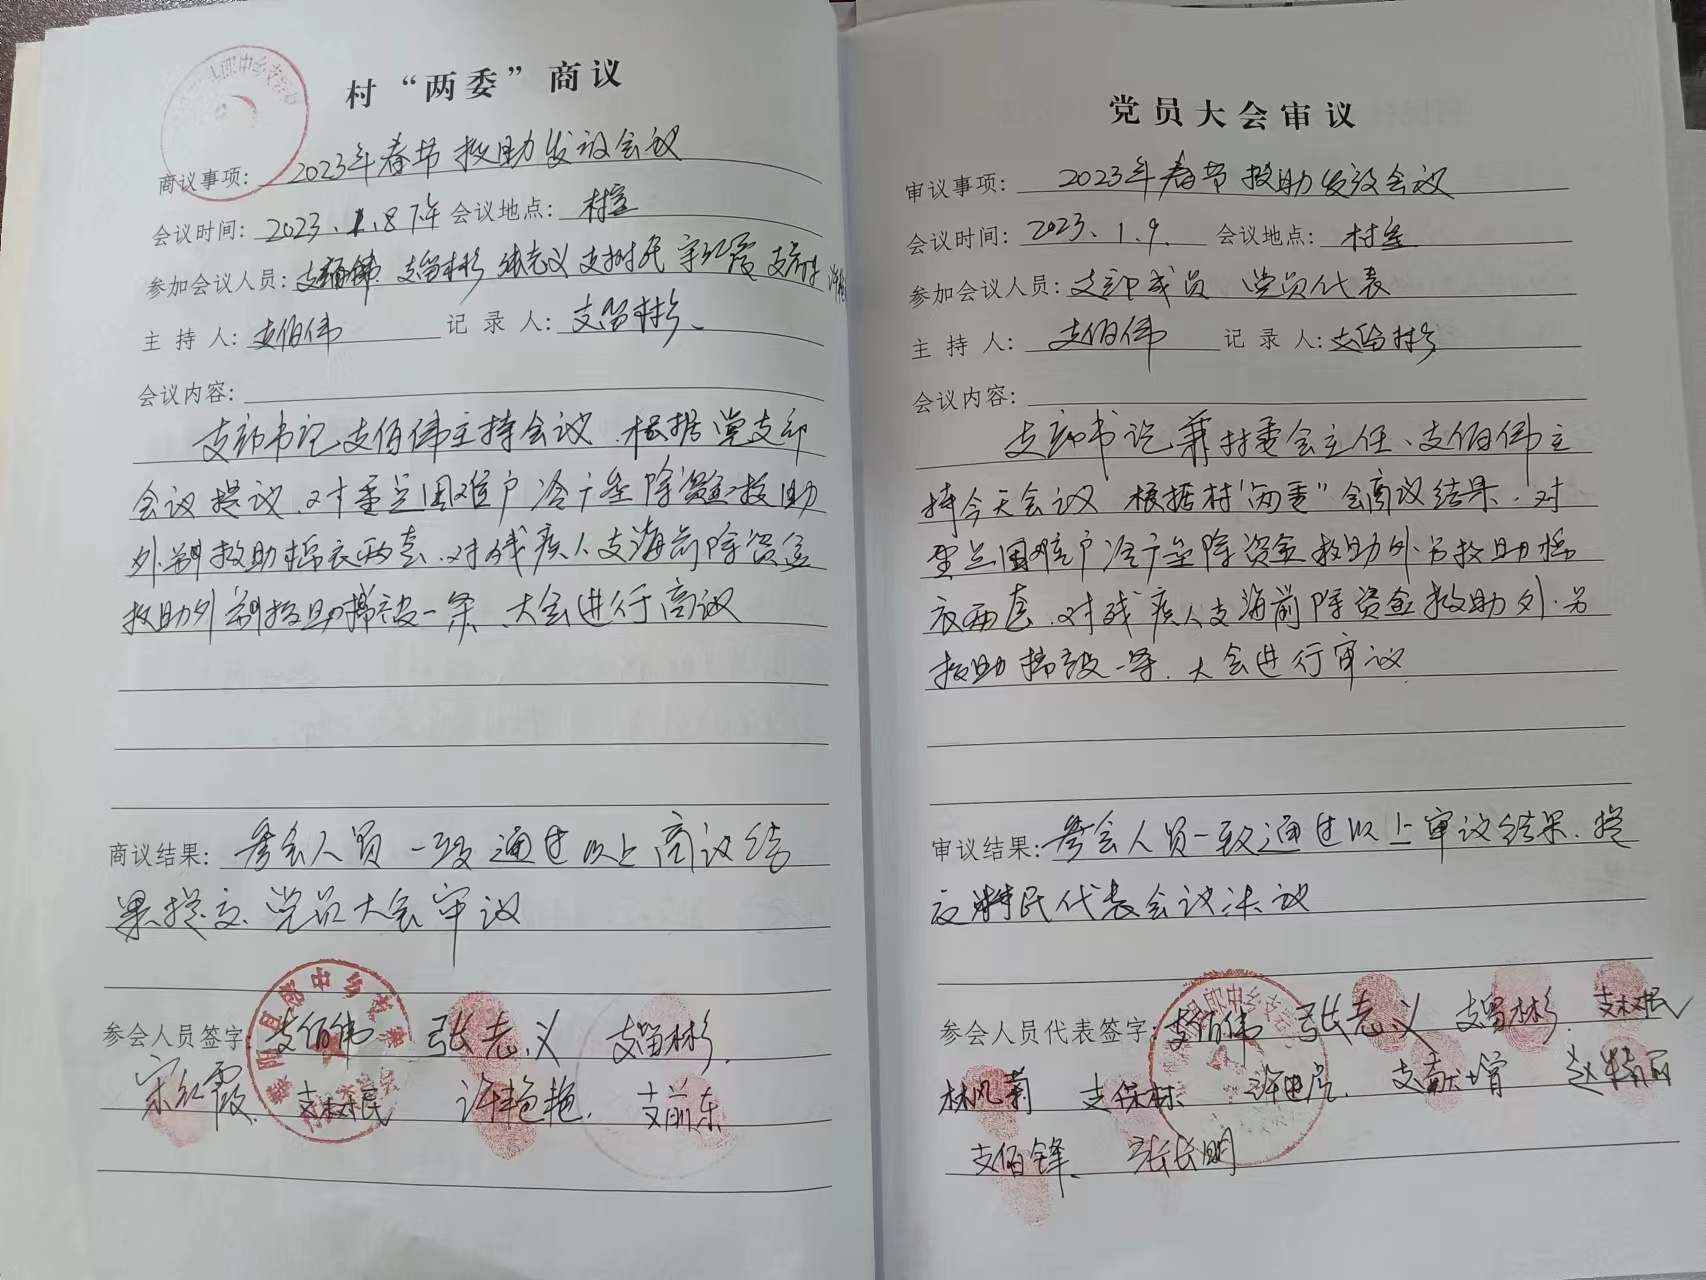 村“两委”商议
商议事项: 2023年春节救助发放会议
会议时间: 2023.1.8下午 会议地点: 村室
参加会议人员: 支佰伟 支留彬 张志义 支树民 宋红霞 支前东
主持人: 支佰伟 记录人: 支留彬
会议内容:
支部书记支佰伟主持会议.根据党支部
会议提议.对重点困难户冷广垒除资金救助
外.另救助棉衣两套.对残疾人支海前除资金
救助外另救助棉被一条、大会进行商议
商议结果: 参会人员一致通过以上商议结
果提交党员大会审议
参会人员签字: 支佰伟 张志义 支留彬.
宋红霞 支树民 许艳艳. 支前东
党员大会审议
审议事项: 2023年春节救助发放会议
会议时间: 2023.1.9. 会议地点: 村室
参加会议人员: 支部成员 党员代表
主持人: 支佰伟 记录人: 支留彬
会议内容:
支部书记兼村委会主任、支佰伟主
持今天会议 根据村“两委”会商议结果.对
重点困难户冷广垒除资金救助外另救助棉
衣两套.对残疾人支海前除资金救助外.另
救助棉被一条.大会进行审议
审议结果: 参会人员一致通过以上审议结果.提
交村民代表会议决议
参会人员代表签字: 支佰伟 张志义 支留彬. 支树民
林凤菊 支保林 支献增
支佰锋 张长明